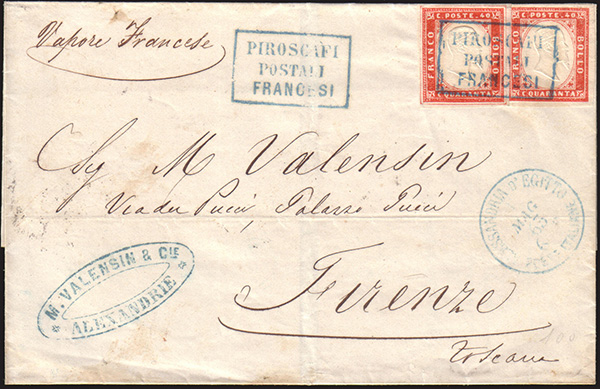 Vapore Francese
PIROSCAFI
POSTALI
FRANCESI
C. POSTE. 40
FRANCO
BOLLO
C. QUARANTA
C. POSTE. 40
FRANCO
BOLLO
C. QUARANTA
PIROSCAFI
POSTALI
FRANCESI
Sg M Valensin
Via dei Pucci, Palazzo Pucci
Firenze
Toscana
ALESSANDRIA D'EGITTO
MAG
M. VALENSIN & CIE
ALEXANDRIE